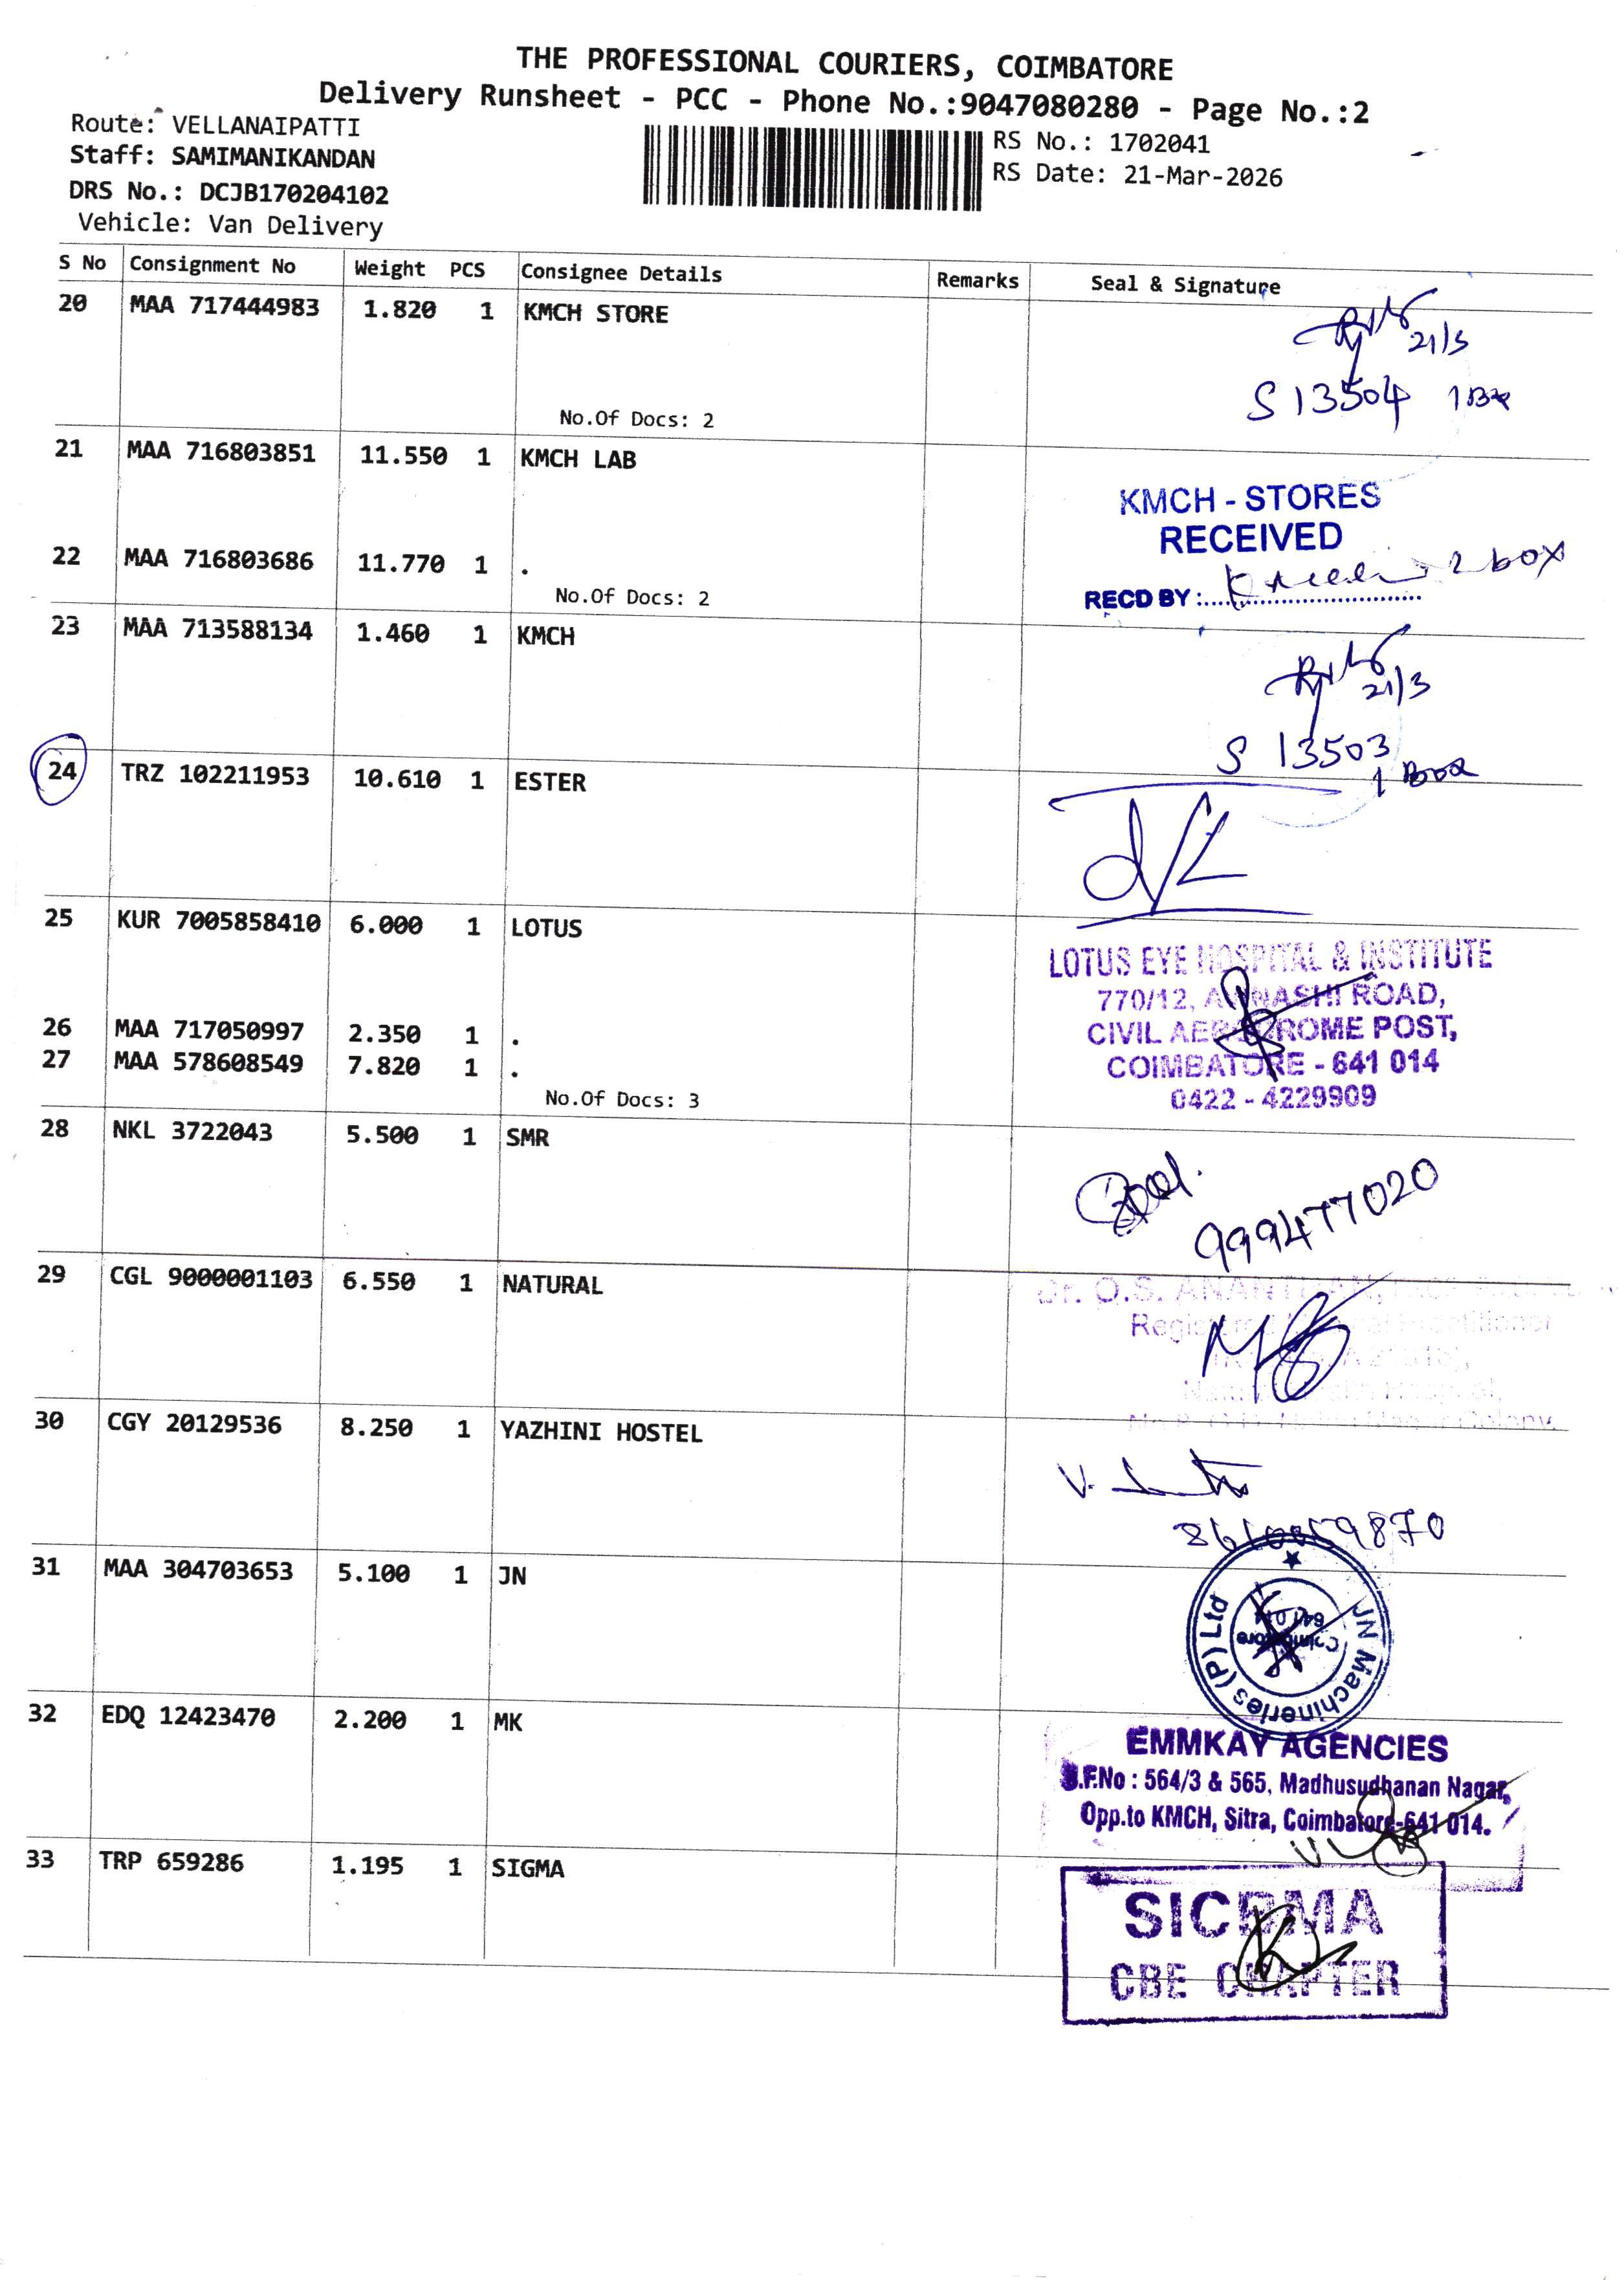 THE PROFESSIONAL COURIERS, COIMBATORE
Delivery Runsheet - PCC - Phone No.:9047080280 - Page No.:2
Route: VELLANAIPATTI
Staff: SAMIMANIKANDAN
DRS No.: DCJB170204102
Vehicle: Van Delivery
RS No.: 1702041
RS Date: 21-Mar-2026
S No Consignment No Weight PCS Consignee Details Remarks Seal & Signature
20 MAA 717444983 1.820 1 KMCH STORE
21/3
S 13504 1 Box
No.Of Docs: 2
21 MAA 716803851 11.550 1 KMCH LAB
KMCH - STORES
RECEIVED
22 MAA 716803686 11.770 1 .
RECD BY : 2 box
No.Of Docs: 2
23 MAA 713588134 1.460 1 KMCH
21/3
S 13503
1 Box
24 TRZ 102211953 10.610 1 ESTER
25 KUR 7005858410 6.000 1 LOTUS
LOTUS EYE HOSPITAL & INSTITUTE
770/12, AVINASHI ROAD,
26 MAA 717050997 2.350 1 .
CIVIL AERODROME POST,
27 MAA 578608549 7.820 1 .
COIMBATORE - 641 014
0422 - 4229909
No.Of Docs: 3
28 NKL 3722043 5.500 1 SMR
999477020
29 CGL 9000001103 6.550 1 NATURAL
Dr. O.S. ANANTHAN
Registered Practitioner
Colony.
30 CGY 20129536 8.250 1 YAZHINI HOSTEL
31 MAA 304703653 5.100 1 JN
JN Machineries (P) Ltd
Coimbatore
641 014
32 EDQ 12423470 2.200 1 MK
EMMKAY AGENCIES
S.F.No : 564/3 & 565, Madhusudhanan Nagar,
Opp.to KMCH, Sitra, Coimbatore-641 014.
33 TRP 659286 1.195 1 SIGMA
CBE CHAPTER